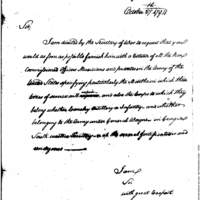 October 27th 1794
Sir,
I am directed by the Secretary of War to request that you
would as soon as possible furnish him with a return of all the Non
Commissioned Officers Musicians and privates in the Army of the
United States specifying particularly the Months in which their
terms of service will expire, and also the Corps to which they
belong whether Cavalry Artillery or Infantry, and whether
belonging to the Army under General Wayne in Georgia
South western Territory or at the several fortifications and
I am
Sir
with great respect